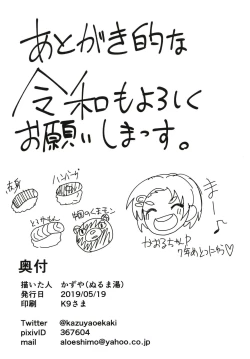 あとがき的な
令和もよろしく
お願いしまっす。
ハンバーグ
まー♪
かおるちゃん♡
7年あとつにか♡
奥付
描いた人　かずや(ぬるま湯)
発行日　2019/05/19
印刷　K9さま
Twitter　@kazuyaoekaki
pixivID　367604
mail　aloeshimo@yahoo.co.jp